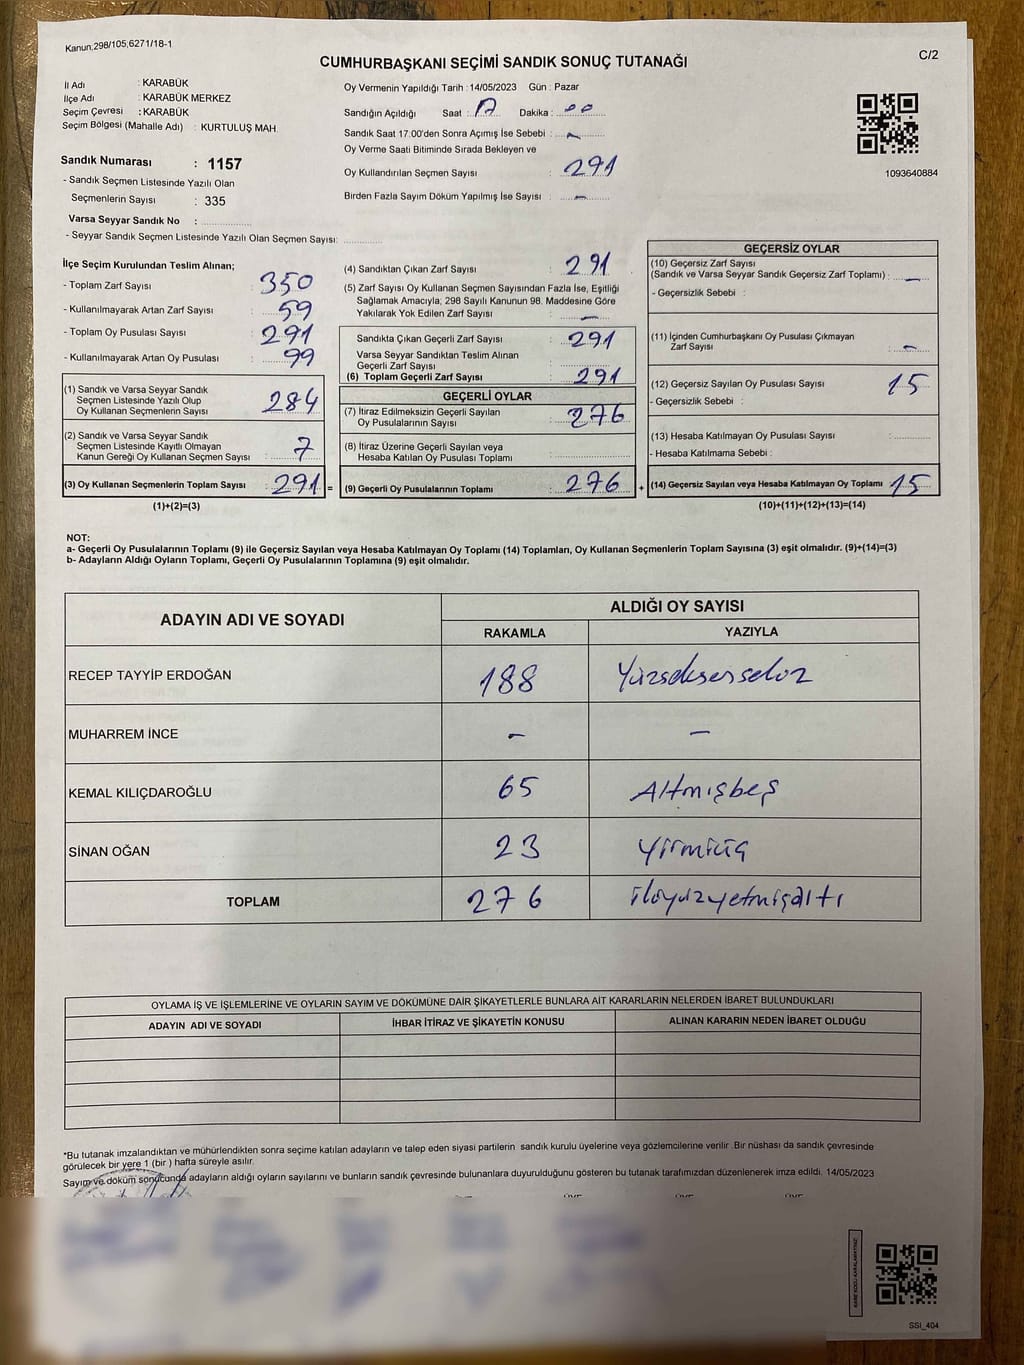 Kanun,298/105,6271/18-1
CUMHURBAŞKANI SEÇİMİ SANDIK SONUÇ TUTANAĞI
C/2
İl Adı : KARABÜK
İlçe Adı : KARABÜK MERKEZ
Seçim Çevresi : KARABÜK
Seçim Bölgesi (Mahalle Adı) : KURTULUŞ MAH.
Sandık Numarası : 1157
- Sandık Seçmen Listesinde Yazılı Olan
Seçmenlerin Sayısı : 335
Varsa Seyyar Sandık No :
- Seyyar Sandık Seçmen Listesinde Yazılı Olan Seçmen Sayısı:
Oy Vermenin Yapıldığı Tarih : 14/05/2023 Gün : Pazar
Sandığın Açıldığı Saat : 17 Dakika : 00
Sandık Saat 17.00'den Sonra Açımış İse Sebebi : -
Oy Verme Saati Bitiminde Sırada Bekleyen ve
Oy Kullandırılan Seçmen Sayısı : 291
Birden Fazla Sayım Döküm Yapılmış İse Sayısı : -
1093640884
İlçe Seçim Kurulundan Teslim Alınan;
- Toplam Zarf Sayısı : 350
- Kullanılmayarak Artan Zarf Sayısı : 59
- Toplam Oy Pusulası Sayısı : 291
- Kullanılmayarak Artan Oy Pusulası : 99
(1) Sandık ve Varsa Seyyar Sandık
Seçmen Listesinde Yazılı Olup
Oy Kullanan Seçmenlerin Sayısı : 284
(2) Sandık ve Varsa Seyyar Sandık
Seçmen Listesinde Kayıtlı Olmayan
Kanun Gereği Oy Kullanan Seçmen Sayısı : 7
(3) Oy Kullanan Seçmenlerin Toplam Sayısı : 291 =
(1)+(2)=(3)
(4) Sandıktan Çıkan Zarf Sayısı : 291
(5) Zarf Sayısı Oy Kullanan Seçmen Sayısından Fazla İse, Eşitliği
Sağlamak Amacıyla; 298 Sayılı Kanunun 98. Maddesine Göre
Yakılarak Yok Edilen Zarf Sayısı : -
Sandıkta Çıkan Geçerli Zarf Sayısı : 291
Varsa Seyyar Sandıktan Teslim Alınan
Geçerli Zarf Sayısı :
(6) Toplam Geçerli Zarf Sayısı : 291
GEÇERLİ OYLAR
(7) İtiraz Edilmeksizin Geçerli Sayılan
Oy Pusulalarının Sayısı : 276
(8) İtiraz Üzerine Geçerli Sayılan veya
Hesaba Katılan Oy Pusulası Toplamı :
(9) Geçerli Oy Pusulalarının Toplamı : 276 +
GEÇERSİZ OYLAR
(10) Geçersiz Zarf Sayısı
(Sandık ve Varsa Seyyar Sandık Geçersiz Zarf Toplamı) : -
- Geçersizlik Sebebi :
(11) İçinden Cumhurbaşkanı Oy Pusulası Çıkmayan
Zarf Sayısı : -
(12) Geçersiz Sayılan Oy Pusulası Sayısı : 15
- Geçersizlik Sebebi :
(13) Hesaba Katılmayan Oy Pusulası Sayısı :
- Hesaba Katılmama Sebebi :
(14) Geçersiz Sayılan veya Hesaba Katılmayan Oy Toplamı : 15
(10)+(11)+(12)+(13)=(14)
NOT:
a- Geçerli Oy Pusulalarının Toplamı (9) ile Geçersiz Sayılan veya Hesaba Katılmayan Oy Toplamı (14) Toplamları, Oy Kullanan Seçmenlerin Toplam Sayısına (3) eşit olmalıdır. (9)+(14)=(3)
b- Adayların Aldığı Oyların Toplamı, Geçerli Oy Pusulalarının Toplamına (9) eşit olmalıdır.
ADAYIN ADI VE SOYADI
ALDIĞI OY SAYISI
RAKAMLA YAZIYLA
RECEP TAYYİP ERDOĞAN 188 Yüzseksensekiz
MUHARREM İNCE - -
KEMAL KILIÇDAROĞLU 65 Altmışbeş
SİNAN OĞAN 23 Yirmiüç
TOPLAM 276 ikiyüzyetmişaltı
OYLAMA İŞ VE İŞLEMLERİNE VE OYLARIN SAYIM VE DÖKÜMÜNE DAİR ŞİKAYETLERLE BUNLARA AİT KARARLARIN NELERDEN İBARET BULUNDUKLARI
ADAYIN ADI VE SOYADI İHBAR İTİRAZ VE ŞİKAYETİN KONUSU ALINAN KARARIN NEDEN İBARET OLDUĞU
*Bu tutanak imzalandıktan ve mühürlendikten sonra seçime katılan adayların ve talep eden siyasi partilerin sandık kurulu üyelerine veya gözlemcilerine verilir .Bir nüshası da sandık çevresinde
görülecek bir yere 1 (bir ) hafta süreyle asılır.
Sayım ve döküm sonucunda adayların aldığı oyların sayılarını ve bunların sandık çevresinde bulunanlara duyurulduğunu gösteren bu tutanak tarafımızdan düzenlenerek imza edildi. 14/05/2023
KARE KODU KARALAMAYINIZ!
SSI_404